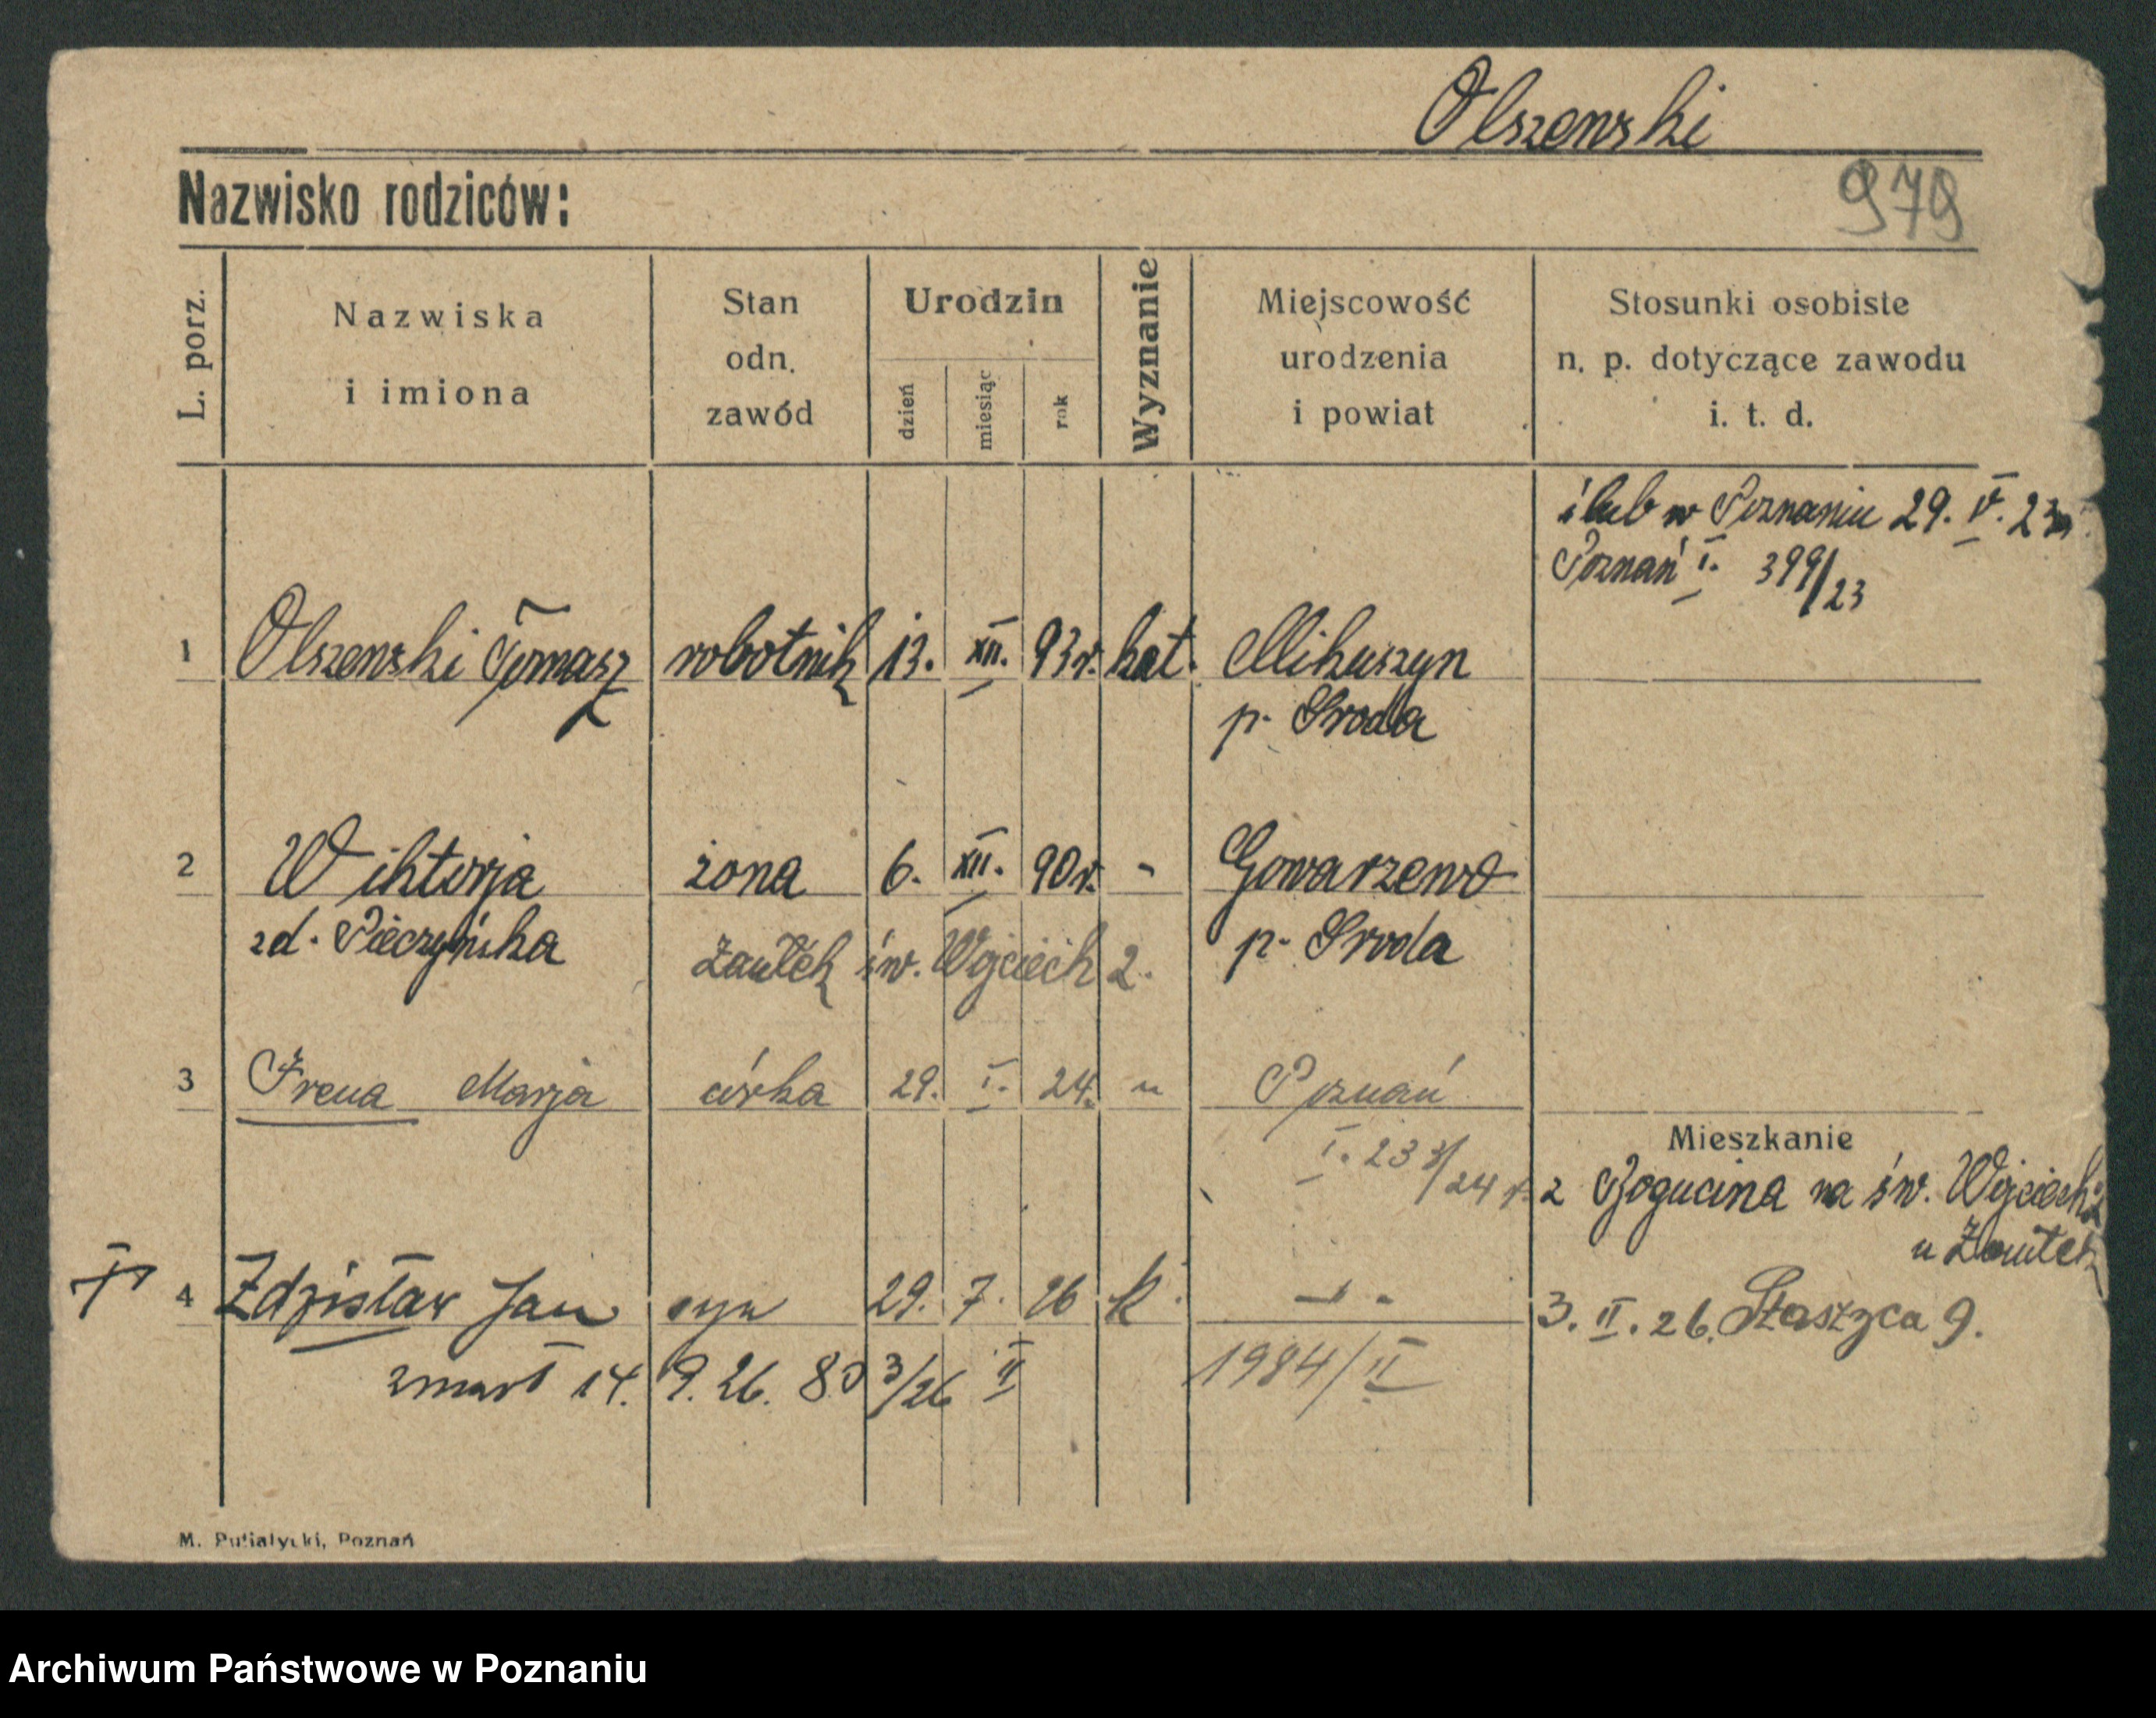 Olszewski
Nazwisko rodziców:
979
L. porz.
Nazwiska
i imiona
Stan
odn.
zawód
Urodzin
dzień
miesiąc
rok
Wyznanie
Miejscowość
urodzenia
i powiat
Stosunki osobiste
n. p. dotyczące zawodu
i. t. d.
ślub w Poznaniu 29. V. 23r
Poznań I. 399/23
1 Olszewski Tomasz robotnik 13. XII. 93r. kat. Mikuszyn
p. Sroda
2 Wiktorja żona 6. XII. 90r. - Gowarzewo
zd. Pieczyńska p. Sroda
Zaułek św. Wojciech 2.
3 Irena Marja córka 29. I. 24. " Poznań
I. 233/24 r.
Mieszkanie
z Bogucina na św. Wojciech 2
u Zaułek
4 Zdzisław Jan syn 29. 7. 26 k. -.-
3. II. 26. Staszyca 9.
zmarł 14. 9. 26. 803/26 II
1984/II
M. Putiatycki, Poznań
Archiwum Państwowe w Poznaniu